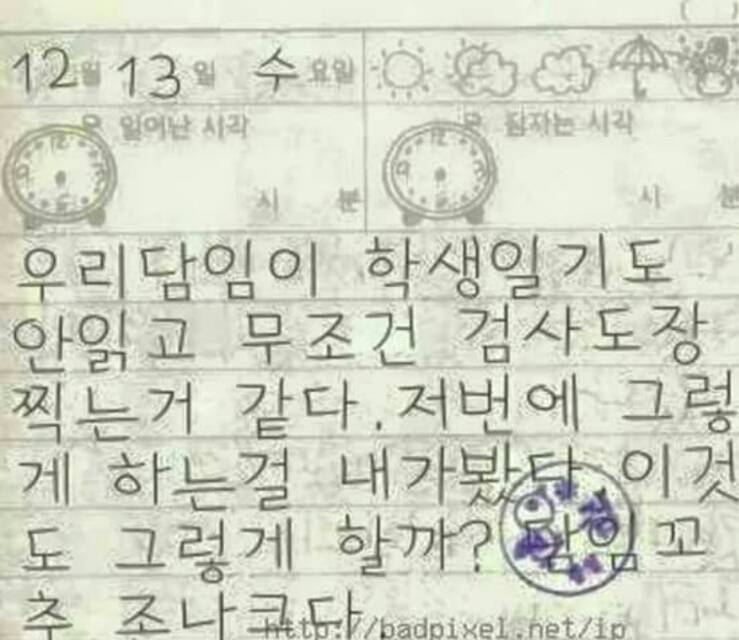 12월 13일 수요일
일어난 시각 잠자는 시각
시 분 시 분
우리담임이 학생일기도
안읽고 무조건 검사도장
찍는거 같다. 저번에 그렇
게 하는걸 내가봤다 이것
도 그렇게 할까? 담임 꼬
추 조나크다.
http://badpixel.net/ip